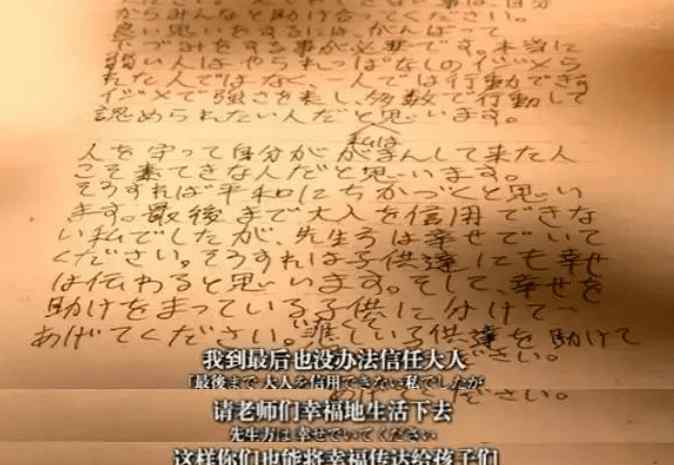 事は、自分
からみんなと助け合ってください。
良い思いをするには、がんばって
下づみをする事が必要です。本当に
弱い人はやられっぱなしのイジメら
れた人ではなく、一人では行動できず
イジメで強さを表し、多数で行動して
認められたい人だと思います。
私は
人を守って自分ががまんして来た人
こそ素てきな人だと思います。
そうすれば平和にちかづくと思い
ます。最後まで大人を信用できな
い私でしたが、先生方は幸せでいて
ください。そうすれば子供達にも幸せ
は伝わると思います。そして、幸せを
助けをまっている子供に分けて
あげてください。 供達を助けて
ださい。
我到最后也没办法信任大人
「最後まで大人を信用できない私でしたが
ださい。
请老师们幸福地生活下去
先生方は幸せでいてください
这样你们也能将幸福传达给孩子们